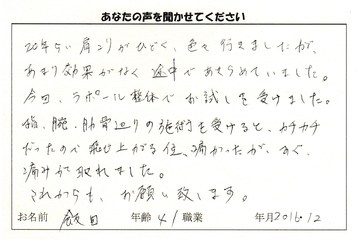 あなたの声を聞かせてください
20年ぐらい肩こりがひどく、色々行きましたが、
あまり効果がなく途中であきらめていました。
今回、ラポール整体でお試しを受けました。
指、腕、肋骨辺りの施術を受けると、カチカチ
だったので飛び上がる位、痛かったが、すぐ、
痛みが取れました。
これからも、お願い致します。
お名前 飯田 年齢 41 職業 年月 2016.12